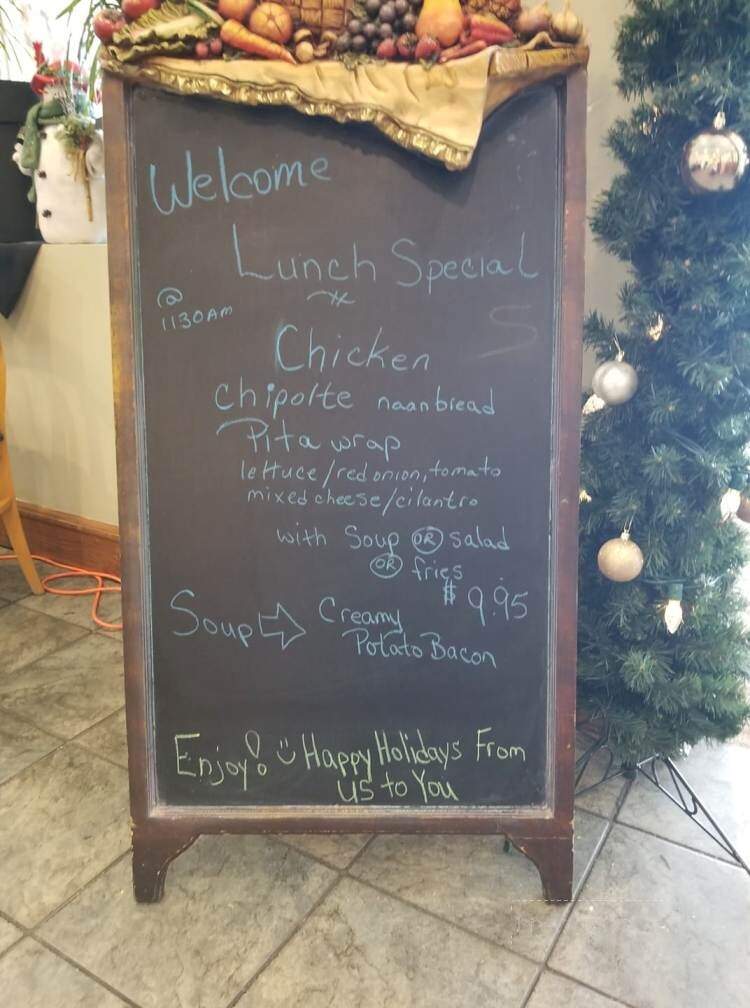 Welcome
Lunch Special
@
1130AM
Chicken
Chipolte naanbread
Pita wrap
lettuce/red onion, tomato
mixed cheese/cilantro
with Soup OR salad
OR fries
$9.95
Soup ⇨ Creamy
Potato Bacon
Enjoy! Happy Holidays From
us to You